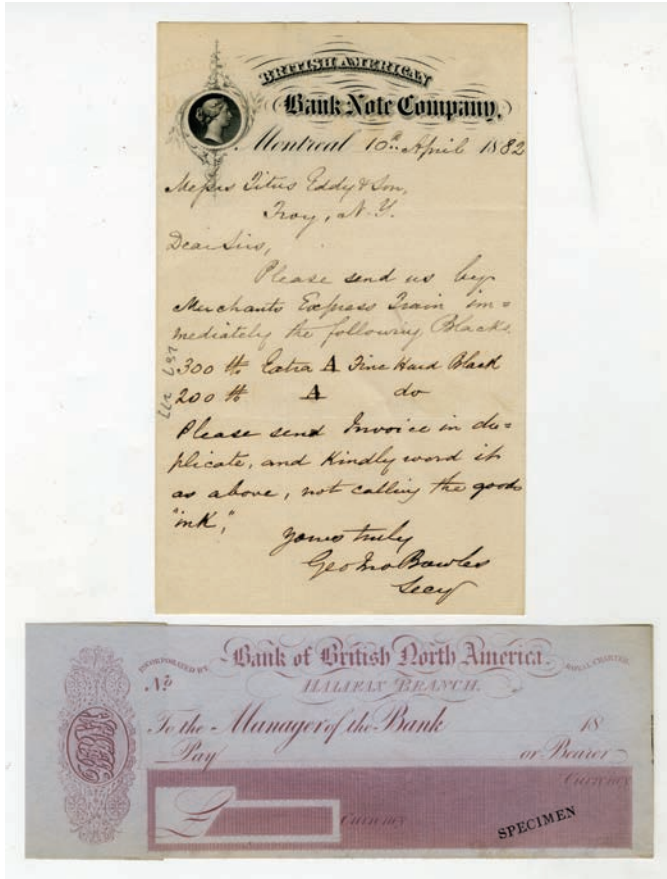 BRITISH AMERICAN
Bank Note Company,
Montreal 10th April 1882
Messrs Titus Eddy & Son,
Troy, N.Y.
Dear Sirs,
Please send us by
Merchants Express Train im=
mediately the following Blacks.
300 lb Extra A Fine Hard Black
200 lb A do
Please send Invoice in du=
plicate, and Kindly word it
as above, not calling the goods
"ink",
Yours truly
Geo Jno Bowles
Secy
INCORPORATED BY Bank of British North America. ROYAL CHARTER.
No. HALIFAX BRANCH.
To the Manager of the Bank 18
Pay or Bearer
Currency
£ Currency
SPECIMEN